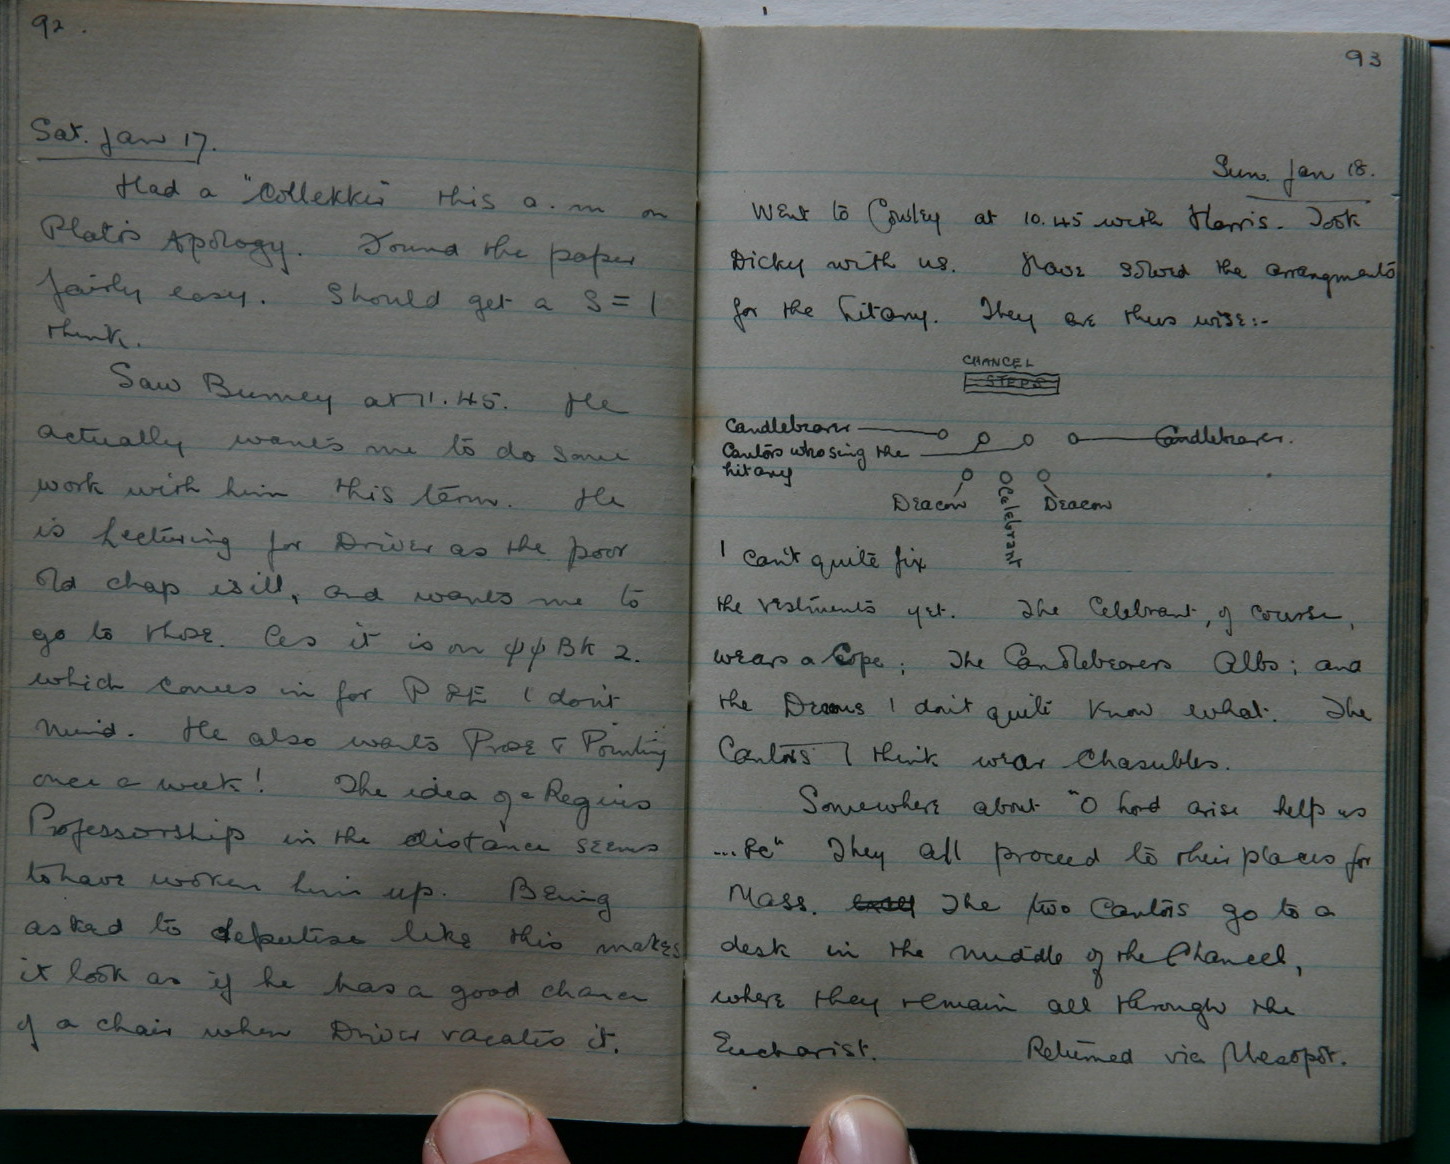 92.
Sat. Jan 17.
Had a "Collekker" this a.m on
Plato's Apology. Found the paper
fairly easy. Should get a S = I
think.
Saw Burney at 11.45. He
actually wants me to do some
work with him this term. He
is Lecturing for Driver as the poor
old chap is ill, and wants me to
go to those. As it is on ψψ Bk 2.
which comes in for P & E I don't
mind. He also wants Prose & Pointing
once a week! The idea of a Regius
Professorship in the distance seems
to have woken him up. Being
asked to deputise like this makes
it look as if he has a good chance
of a chair when Driver vacates it.
93
Sun. Jan 18.
Went to Cowley at 10.45 with Harris. Took
Dicky with us. Have solved the arrangments
for the Litany. They are thus wise:-
CHANCEL
STEPS
Candlebearer Candlebearer.
Cantors who sing the
Litany
Deacon Celebrant Deacon
I can't quite fix
the vestments yet. The Celebrant, of course,
wears a Cope; The Candlebearers Albs; and
the Deacons I don't quite know what. The
Cantors I think wear Chasubles.
Somewhere about "O Lord arise help us
... &c" They all proceed to their places for
Mass. The two Cantors go to a
desk in the middle of the Chancel,
where they remain all through the
Eucharist. Returned via Mesopot.